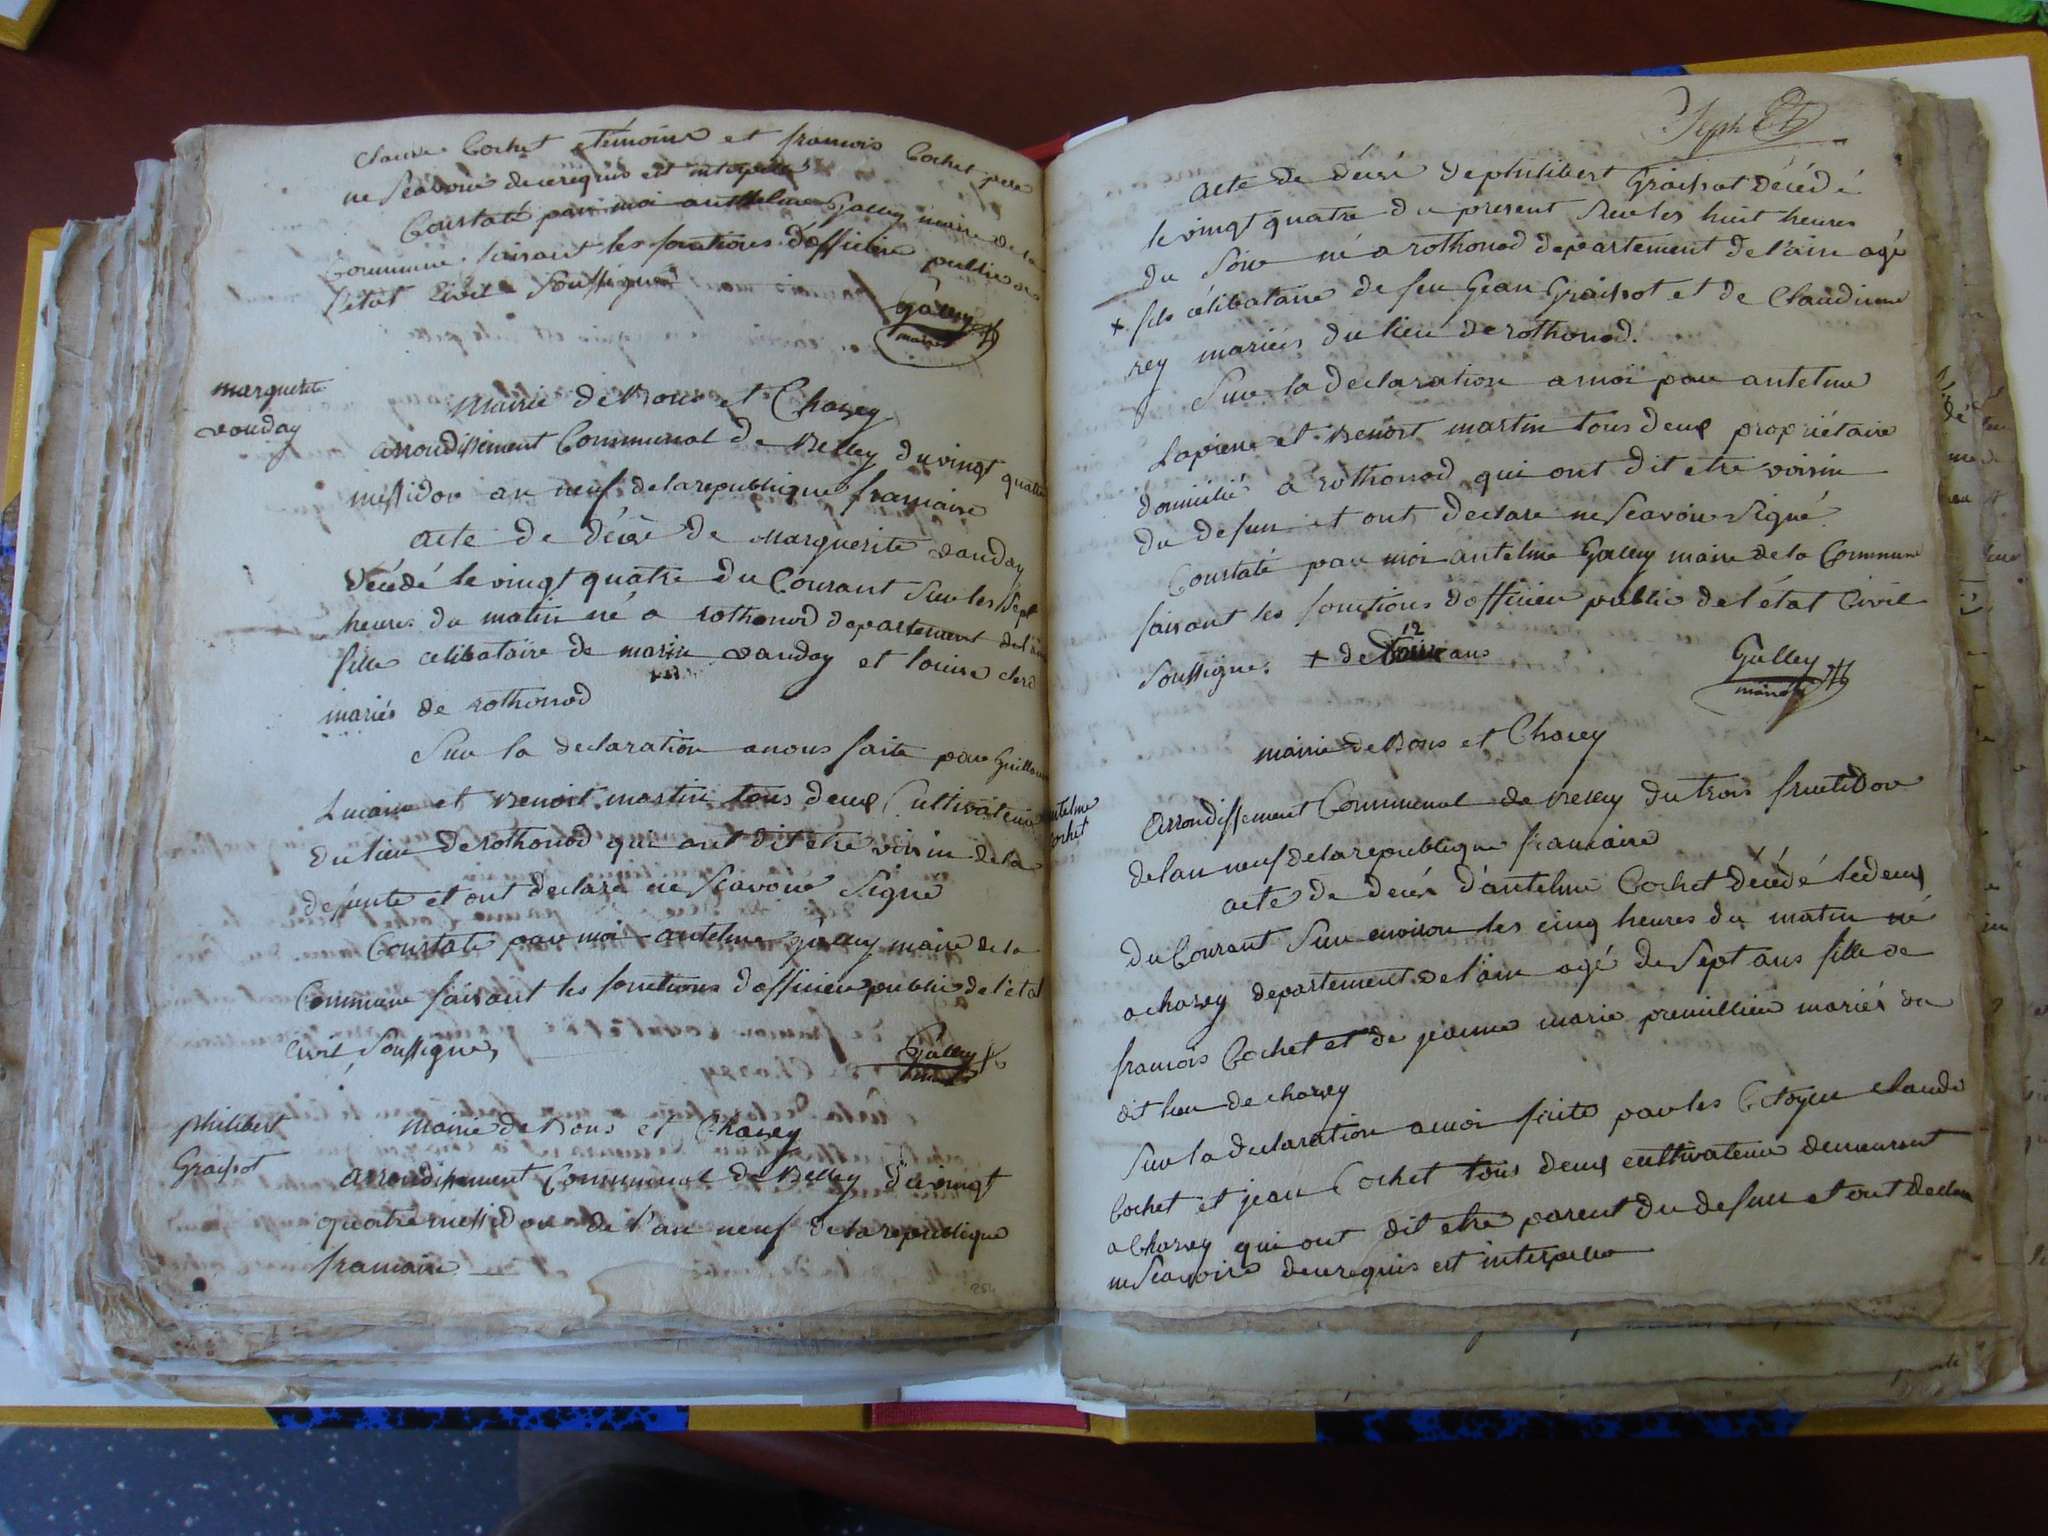 Claude Cochet témoins et francois Cochet pere
ne Scavoir de ce requis et interpellé
Constaté par moi anthelme Galley maire de la
Commune faisant les fonctions d'officier public de
l'état Civil Soussigné
Galley
maire
marguerite
vouday
Mairie de Bons et Chazey
arrondissement Communal de Belley du vingt quatre
messidor an neuf de la republique francaise
acte de décès de Marguerite vauday
décédé le vingt quatre du Courant Sur les sept
heures du matin né a rothonod departement de l'ain
fille célibataire de vauday et louise
mariés de rothonod
Sur la declaration a nous faite par Guillaume
Lucain et Benoit martin tous deux Cultivateur
du lieu de rothonod qui ont dit etre voisin de la
defunte et ont declaré ne Scavoir Signé
Constaté par moi antelme Galley maire de la
Commune faisant les fonctions d'officier public de l'état
Civil Soussigné
Galley
maire
philibert
Graisot
Mairie de Bons et Chazey
arrondissement Communal de Belley du vingt
quatre messidor de l'an neuf de la republique
francaise
acte de décès de philibert Graissot décédé
le vingt quatre du present Sur les huit heures
du Soir né a rothonod departement de l'ain agé
+ fils célibataire de feu Jean Graissot et de Claudine
rey mariés du lieu de rothonod.
Sur la declaration a moi par antelme
Lapierre et Benoit martin tous deux propriétaire
domicilié a rothonod qui ont dit etre voisin
du defun et ont declare ne Scavoir Signé
Constaté par moi antelme Galley maire de la Commune
faisant les fonctions d'officier public de l'état Civil
Soussigné. + de 12 ans
Galley
maire
mairie de Bons et Chazey
antelme
Cochet
arrondissement Communal de Belley du trois fructidor
de l'an neuf de la republique francaise
acte de decés d'antelme Cochet décédé le deux
du Courant Sur environ les cinq heures du matin né
a chazey departement de l'ain agé de Sept ans fille de
francois Cochet et de jeanne marie premillieu mariés du
dit lieu de chazey
Sur la declaration a moi faite par les Citoyen Claude
Cochet et jean Cochet tous deux cultivateur demeurant
a Chazey qui ont dit etre parent du defun et ont declare
ne Scavoir de ce requis et interpellé